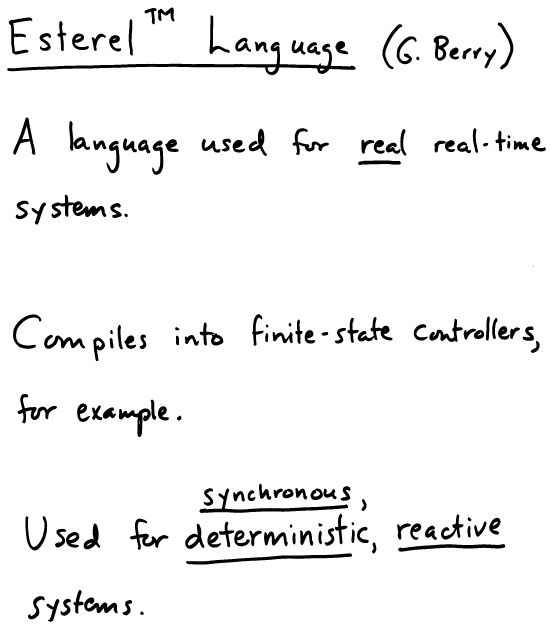 Esterel™ Language (G. Berry)
A language used for real real-time
systems.
Compiles into finite-state controllers,
for example.
synchronous,
Used for deterministic, reactive
systems.